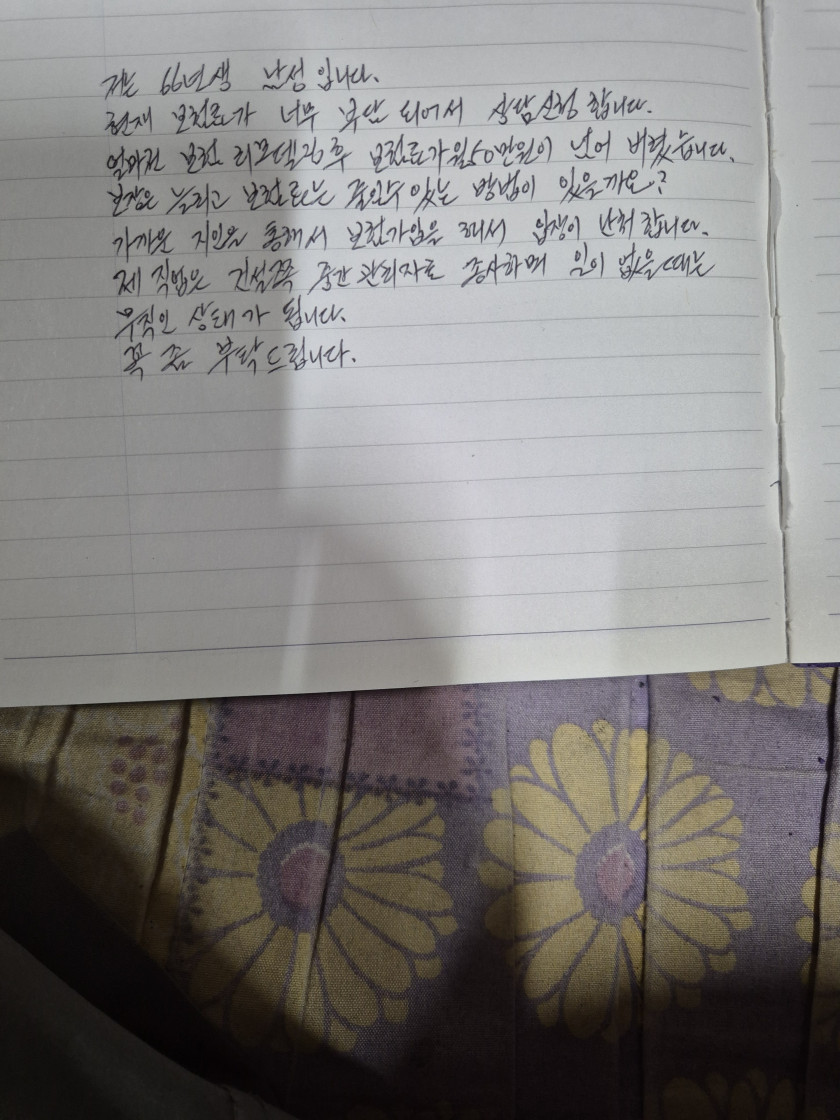 저는 66년생 남성 입니다.
현재 보험료가 너무 부담 되어서 상담신청 합니다.
얼마전 보험 리모델링후 보험료가 월50만원이 넘어 버렸습니다.
보장은 늘리고 보험료는 줄일수 있는 방법이 있을까요?
가까운 지인을 통해서 보험가입을 해서 입장이 난처 합니다.
제 직업은 건설쪽 중간 관리자로 종사하며 일이 없을때는
무직인 상태가 됩니다.
꼭 좀 부탁드립니다.